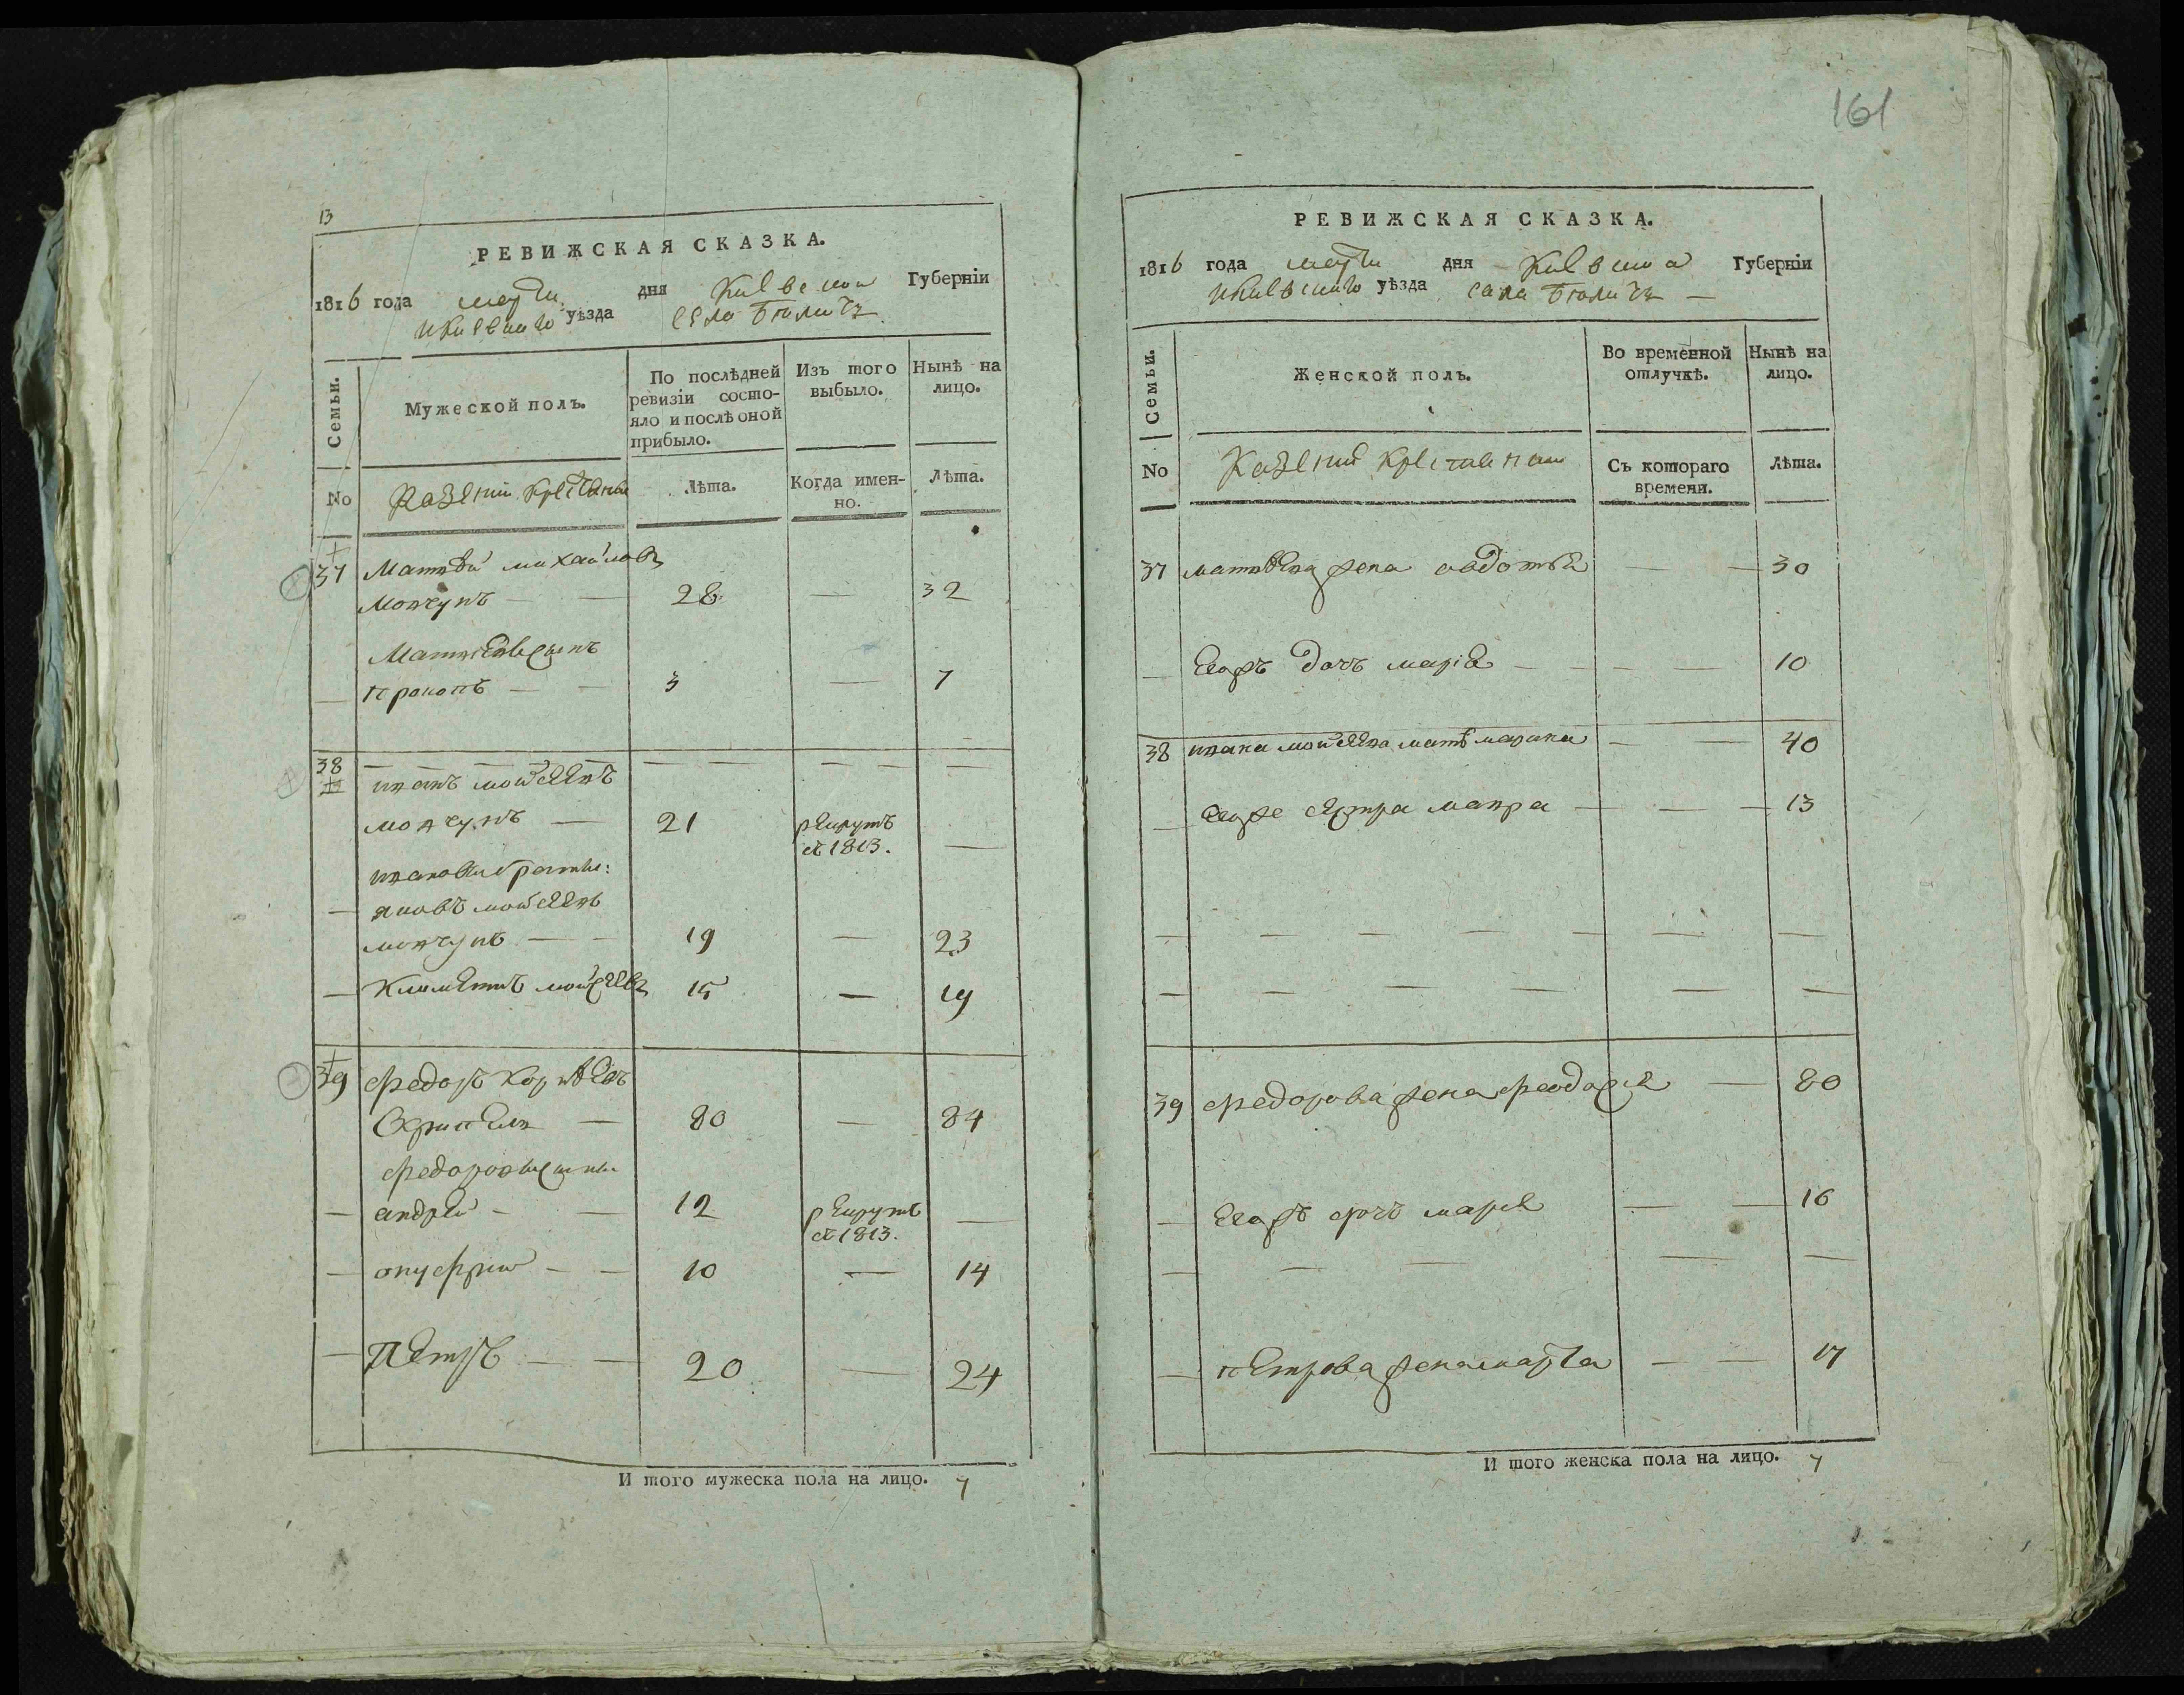 13
РЕВИЖСКАЯ СКАЗКА.
1816 года марта дня Киевской Губерніи
и Киевского уѣзда села Белич
Семьи.
Мужеской полъ.
По послѣдней ревизіи состо-
яло и послѣ оной
прибыло.
Изъ того
выбыло.
Нынѣ на
лицо.
No
Казенніи крестяне
Лѣта.
Когда имен-
но.
Лѣта.
37 Матвѣй михайловъ
мовчунъ — — 28 — 32
Матвѣевъ сынъ
— прокопъ — — 3 — 7
38
иванъ мойсеевъ
мовчунъ — 21 рекрутъ
въ 1813. —
ивановы братья:
— яковъ мойсеевъ
мовчунъ — — 19 — 23
— Климентъ мойсеевъ 15 — 19
39 федоръ Корнѣевъ
80 — 84
федоровы сыны
— андрей — — 12 рекрутъ
въ 1813. —
— онуфрий — — 10 — 14
— Петръ — — 20 — 24
И того мужеска пола на лицо. 7
161
РЕВИЖСКАЯ СКАЗКА.
1816 года марта дня Киевской Губерніи
и Киевского уѣзда села Белич —
Семьи.
Женской полъ.
Во временной
отлучкѣ.
Нынѣ на
лицо.
No
Казенніи крестянки
Съ котораго
времени.
Лѣта.
37 матвѣева жена авдотья — — 30
— Егожъ дочь марія — — — 10
38 ивана мойсеева мать марина — — 40
— Егоже сестра мавра — — — 13
39 федорова жена феодосія — 80
— Егожъ дочь марія — — 16
— петрова жена марта — — 17
И того женска пола на лицо. 7